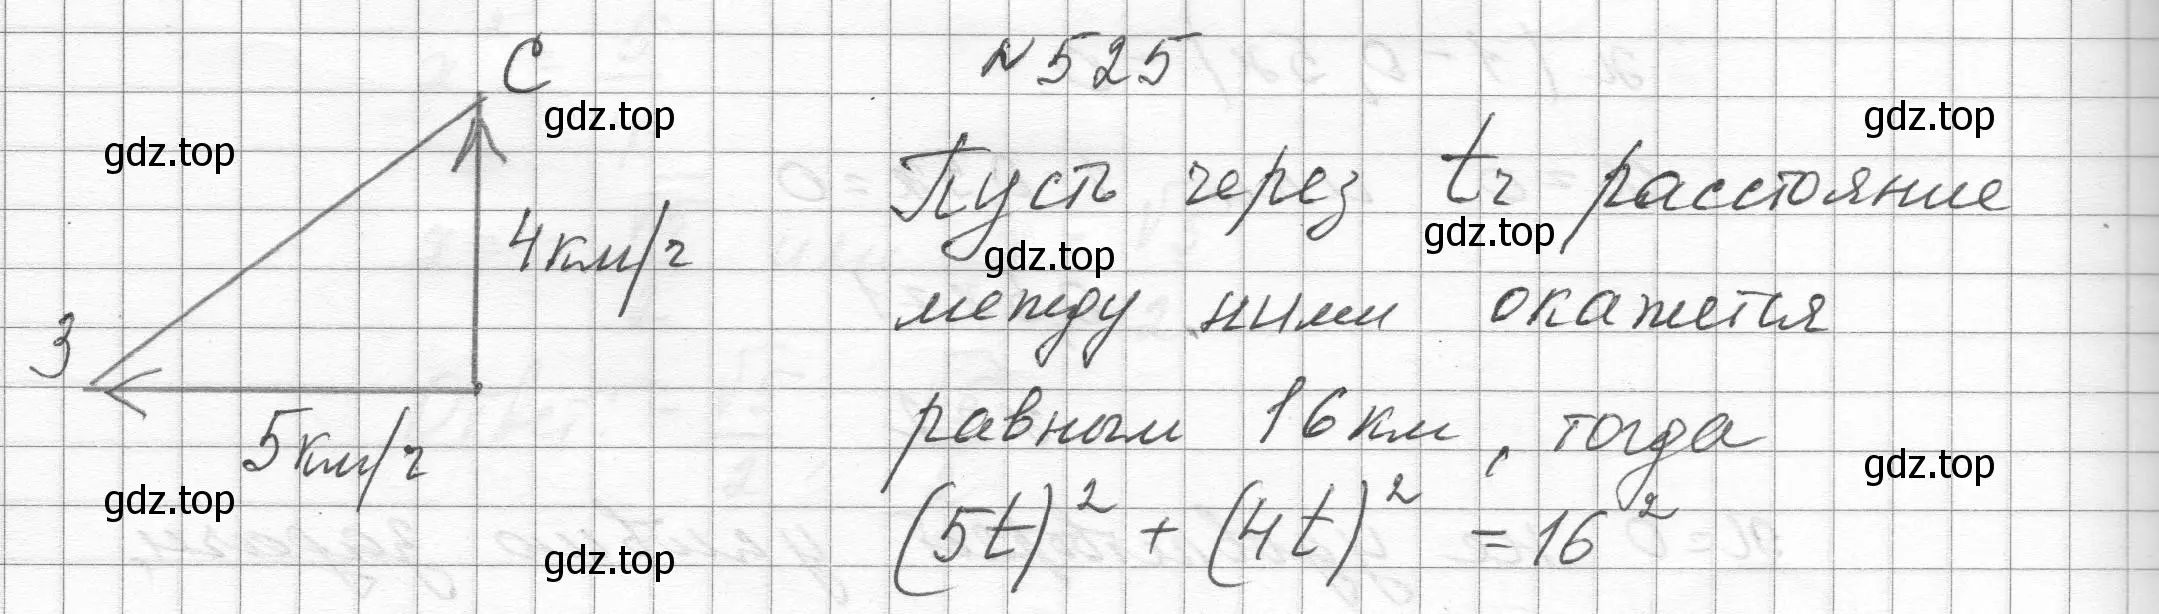 №525
С
Пусть через tч расстояние
4км/ч
между ними окажется
З
равным 16км, тогда
5км/ч
(5t)² + (4t)² = 16²
gdz.top
gdz.top
gdz.top
gdz.top
gdz.top
gdz.top
gdz.top
gdz.top